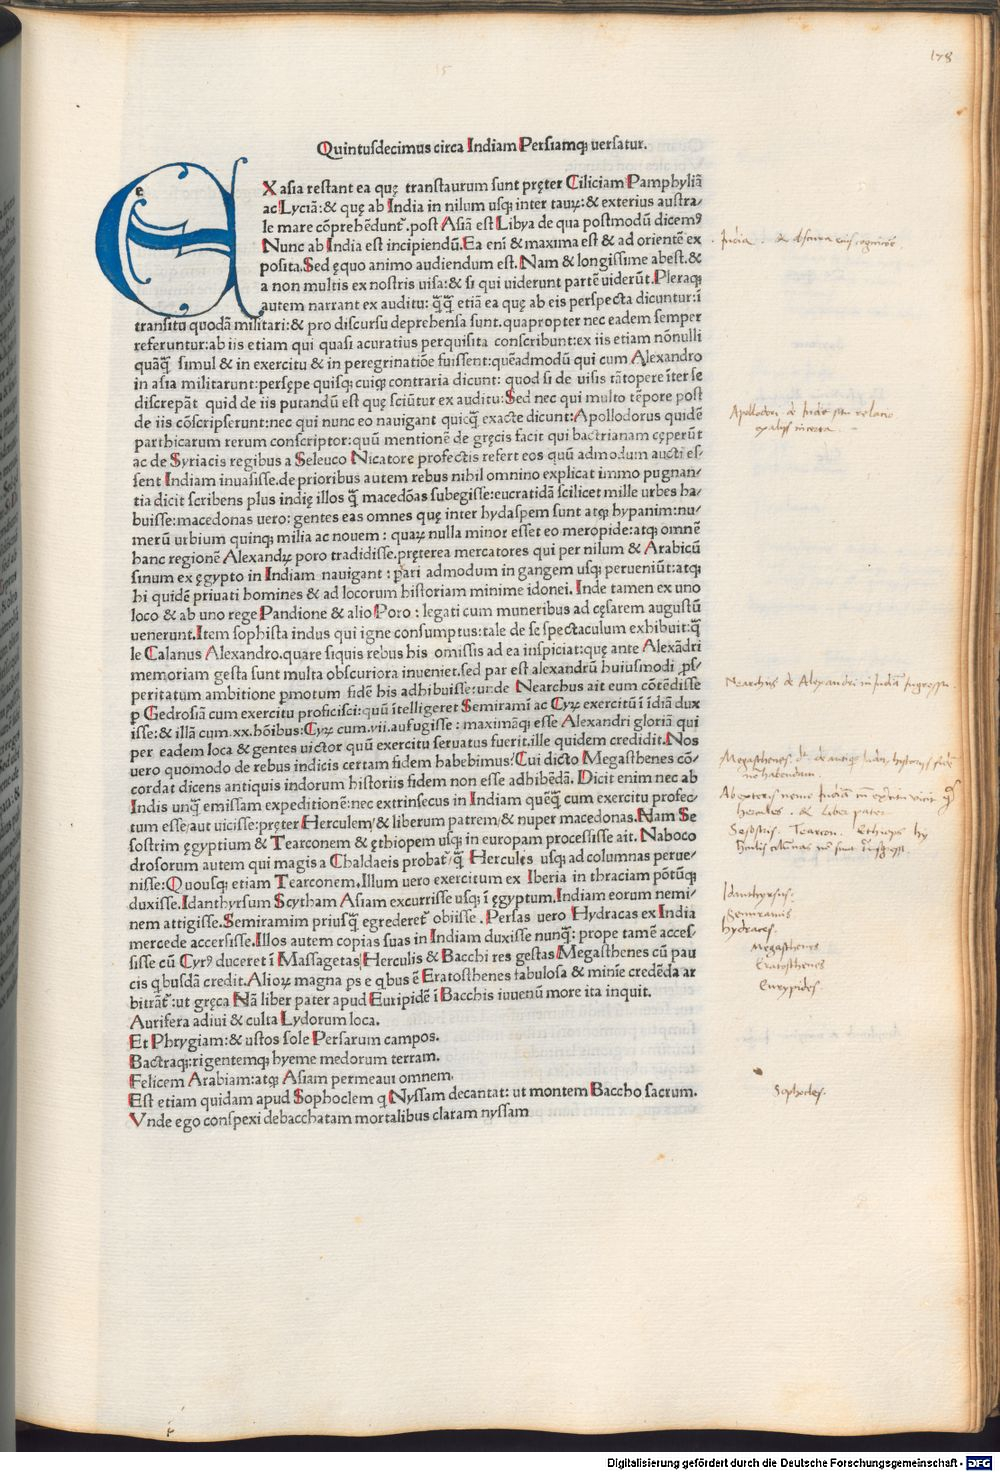 178
15
Quintusdecimus circa Indiam Persiamqꝫ uersatur.
e
EX asia restant ea quę transtaurum sunt pręter Ciliciam Pamphyliā
ac Lyciā:& quę ab India in nilum usqꝫ inter tauꝝ:& exterius austra/
le mare cōprehēdunt᷑.post Asiā est Libya de qua postmodū dicemꝰ
Nunc ab India est incipiendū.Ea enī & maxima est & ad orientē ex
posita.Sed ęquo animo audiendum est.Nam & longissime abest.&
a non multis ex nostris uisa:& si qui uiderunt partē uiderūt.Pleraqꝫ
autem narrant ex auditu: q̄q̄ etiā ea quę ab eis perspecta dicuntur:ī
transitu quodā militari:& pro discursu deprehensa sunt.quapropter nec eadem semper
referuntur:ab iis etiam qui quasi acuratius perquisita conscribunt:ex iis etiam nōnulli
quāq̄ simul & in exercitu & in peregrinatiōe fuissent:quēadmodū qui cum Alexandro
in asia militarunt:persępe quisqꝫ cuiqꝫ contraria dicunt: quod si de uisis tātopere īter se
discrepāt quid de iis putandū est quę sciūtur ex auditu:Sed nec qui multo tēpore post
de iis cōscripserunt:nec qui nunc eo nauigant quicq̄ exacte dicunt:Apollodorus quidē
parthicarum rerum conscriptor:quū mentionē de gręcis facit qui bactrianam cęperūt
ac de Syriacis regibus a Seleuco Nicatore profectis refert eos quū admodum aucti es/
sent Indiam inuasisse.de prioribus autem rebus nihil omnino explicat immo pugnan/
tia dicit scribens plus indię illos q̄ macedōas subegisse:eucratidā scilicet mille urbes ha/
buisse:macedonas uero: gentes eas omnes quę inter hydaspem sunt atqꝫ hypanim:nu/
merū urbium quinqꝫ milia ac nouem: quaꝝ nulla minor esset eo meropide:atqꝫ omnē
hanc regionē Alexandꝝ poro tradidisse.pręterea mercatores qui per nilum & Arabicū
sinum ex ęgypto in Indiam nauigant : pari admodum in gangem usqꝫ perueniūt:atqꝫ
hi quidē priuati homines & ad locorum historiam minime idonei. Inde tamen ex uno
loco & ab uno rege Pandione & alio Poro : legati cum muneribus ad cęsarem augustū
uenerunt.Item sophista indus qui igne consumptus:tale de se spectaculum exhibuit:q̄
le Calanus Alexandro.quare siquis rebus his omissis ad ea inspiciat:quę ante Alexādri
memoriam gesta sunt multa obscuriora inueniet.sed par est alexandrū huiusmodi ꝓs/
peritatum ambitione ꝑmotum fidē his adhibuisse:unde Nearchus ait eum cōtēdisse
ꝑ Gedrosiā cum exercitu proficisci:quū ītelligeret Semiramī ac Cyꝝ exercitū ī īdiā dux
isse:& illā cum.xx.hōibus:Cyꝝ cum.vii.aufugisse : maximāqꝫ esse Alexandri gloriā qui
per eadem loca & gentes uictor quū exercitu seruatus fuerit.ille quidem credidit.Nos
uero quomodo de rebus indicis certam fidem habebimus?Cui dicto Megasthenes cō/
cordat dicens antiquis indorum historiis fidem non esse adhibēdā. Dicit enim nec ab
Indis unq̄ emissam expeditionē:nec extrinsecus in Indiam quēq̄ cum exercitu profec/
tum esse/aut uicisse:pręter Herculem/& liberum patrem/& nuper macedonas.Nam Se
sostrim ęgyptium & Tearconem & ęthiopem usqꝫ in europam processisse ait. Naboco
drosorum autem qui magis a Chaldaeis probat᷑/q̄ Hercules usqꝫ ad columnas perue/
nisse:Quousqꝫ etiam Tearconem.Illum uero exercitum ex Iberia in thraciam pōtūqꝫ
duxisse.Idanthyrsum Scytham Asiam excurrisse usqꝫ ī ęgyptum.Indiam eorum nemi/
nem attigisse.Semiramim priusq̄ egrederet᷑ obiisse . Persas uero Hydracas ex India
mercede accersisse.Illos autem copias suas in Indiam duxisse nunq̄: prope tamē acces/
sisse cū Cyrꝰ duceret ī Massagetas/Herculis & Bacchi res gestas/Megasthenes cū pau
cis qbusdā credit.Alioꝝ magna ps e qbus ē Eratosthenes fabulosa & minīe credēda ar
bitrāt᷑:ut gręca Nā liber pater apud Euripidē ī Bacchis iuuenū more ita inquit.
Aurifera adiui & culta Lydorum loca.
Et Phrygiam:& ustos sole Persarum campos.
Bactraqꝫ:rigentemqꝫ hyeme medorum terram.
Felicem Arabiam:atqꝫ Asiam permeaui omnem.
Est etiam quidam apud Sophoclem q Nyssam decantat: ut montem Baccho sacrum.
Vnde ego conspexi debacchatam mortalibus claram nyssam
India . & obscura eius cognitio
Apollodori de India relatio
incerta
Nearchus de Alexandri in Indiā ingressu
Megasthenes
nō habendam.
Ab exteris
Hercules . & Liber pater
Sesostris. Tearcon. Ethiops
Idanthyrsus.
Semiramis
hydraces.
Megasthenes
Eratosthenes
Eurypides.
Sophocles.
Digitalisierung gefördert durch die Deutsche Forschungsgemeinschaft - DFG